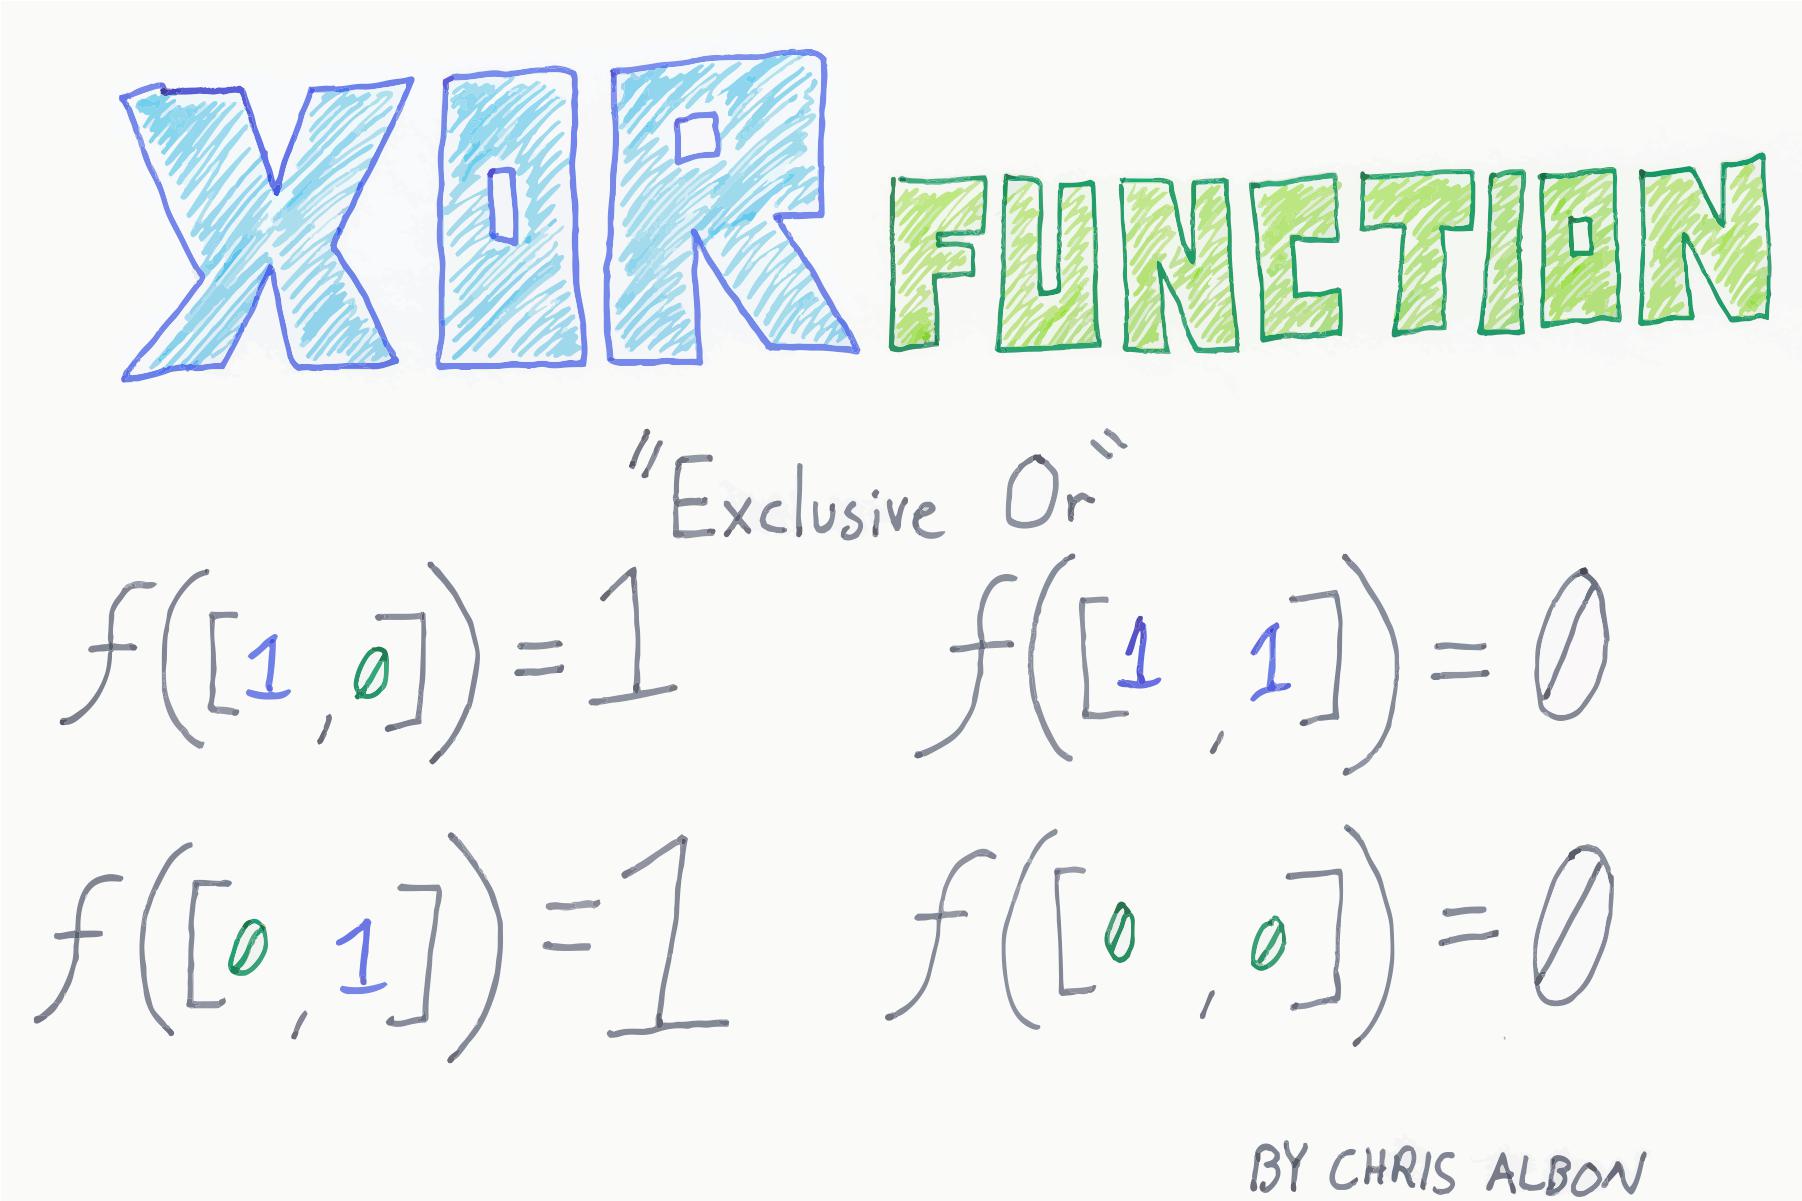 XOR FUNCTION
"Exclusive Or"
f([1, 0]) = 1
f([1, 1]) = 0
f([0, 1]) = 1
f([0, 0]) = 0
BY CHRIS ALBON